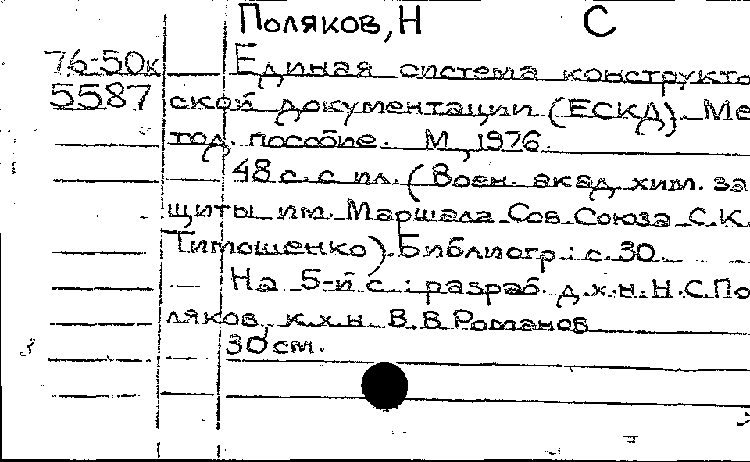 Поляков, Н С
76-50к Единая система конструкто
5587 ской документации (ЕСКД). Ме
тод. пособие. М, 1976.
48 с. с ил. (Воен. акад. хим. за
щиты им. Маршала Сов. Союза С.К.
Тимошенко). Библиогр.: с. 30.
На 5-й с.: разраб. д.х.н. Н.С. По
ляков, к.х.н. В.В Романов
30 см.